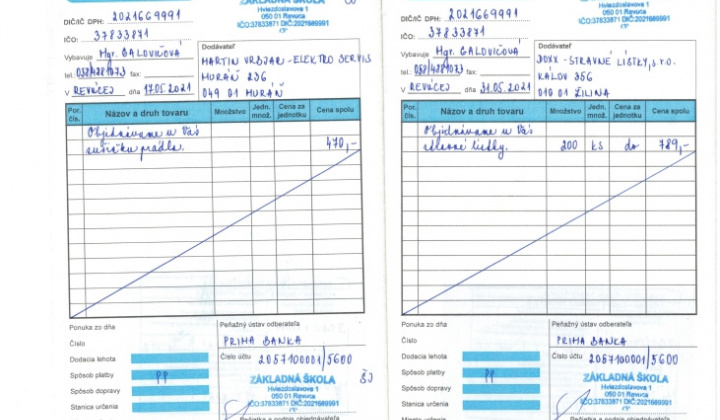 ZÁKLADNÁ ŠKOLA
Hviezdoslavova 1
050 01 Revúca
IČO:37833871 DIČ:2021669991
DIČ/IČ DPH: 2021669991
IČO: 37833871
Vybavuje Mgr. GALOVIČOVÁ
tel.: 058/4881073 fax:
V REVÚCEJ dňa 17.05.2021
Dodávateľ
MARTIN VRBJAR - ELEKTRO SERVIS
MURÁŇ 236
049 01 MURÁŇ
Por. čís. Názov a druh tovaru Množstvo Jedn. množ. Cena za jednotku Cena spolu
Objednávame u Vás
sušičku prádla. 470,-
Ponuka zo dňa
Číslo
Dodacia lehota
Spôsob platby PP
Spôsob dopravy
Stanica určenia
Peňažný ústav odberateľa
PRIMA BANKA
Číslo účtu 2057100001/5600
ZÁKLADNÁ ŠKOLA
Hviezdoslavova 1
050 01 Revúca
IČO:37833871 DIČ:2021669991
Pečiatka a podpis objednávateľa
Hviezdoslavova 1
050 01 Revúca
IČO:37833871 DIČ:2021669991
DIČ/IČ DPH: 2021669991
IČO: 37833871
Vybavuje Mgr. GALOVIČOVÁ
tel.: 058/4881073 fax:
V REVÚCEJ dňa 31.05.2021
Dodávateľ
DOXX - STRAVNÉ LÍSTKY, s.r.o.
KÁLOV 356
010 01 ŽILINA
Por. čís. Názov a druh tovaru Množstvo Jedn. množ. Cena za jednotku Cena spolu
Objednávame u Vás
stravné lístky. 200 ks do 789,-
Ponuka zo dňa
Číslo
Dodacia lehota
Spôsob platby PP
Spôsob dopravy
Stanica určenia
Peňažný ústav odberateľa
PRIMA BANKA
Číslo účtu 2057100001/5600
ZÁKLADNÁ ŠKOLA
Hviezdoslavova 1
050 01 Revúca
IČO:37833871 DIČ:2021669991